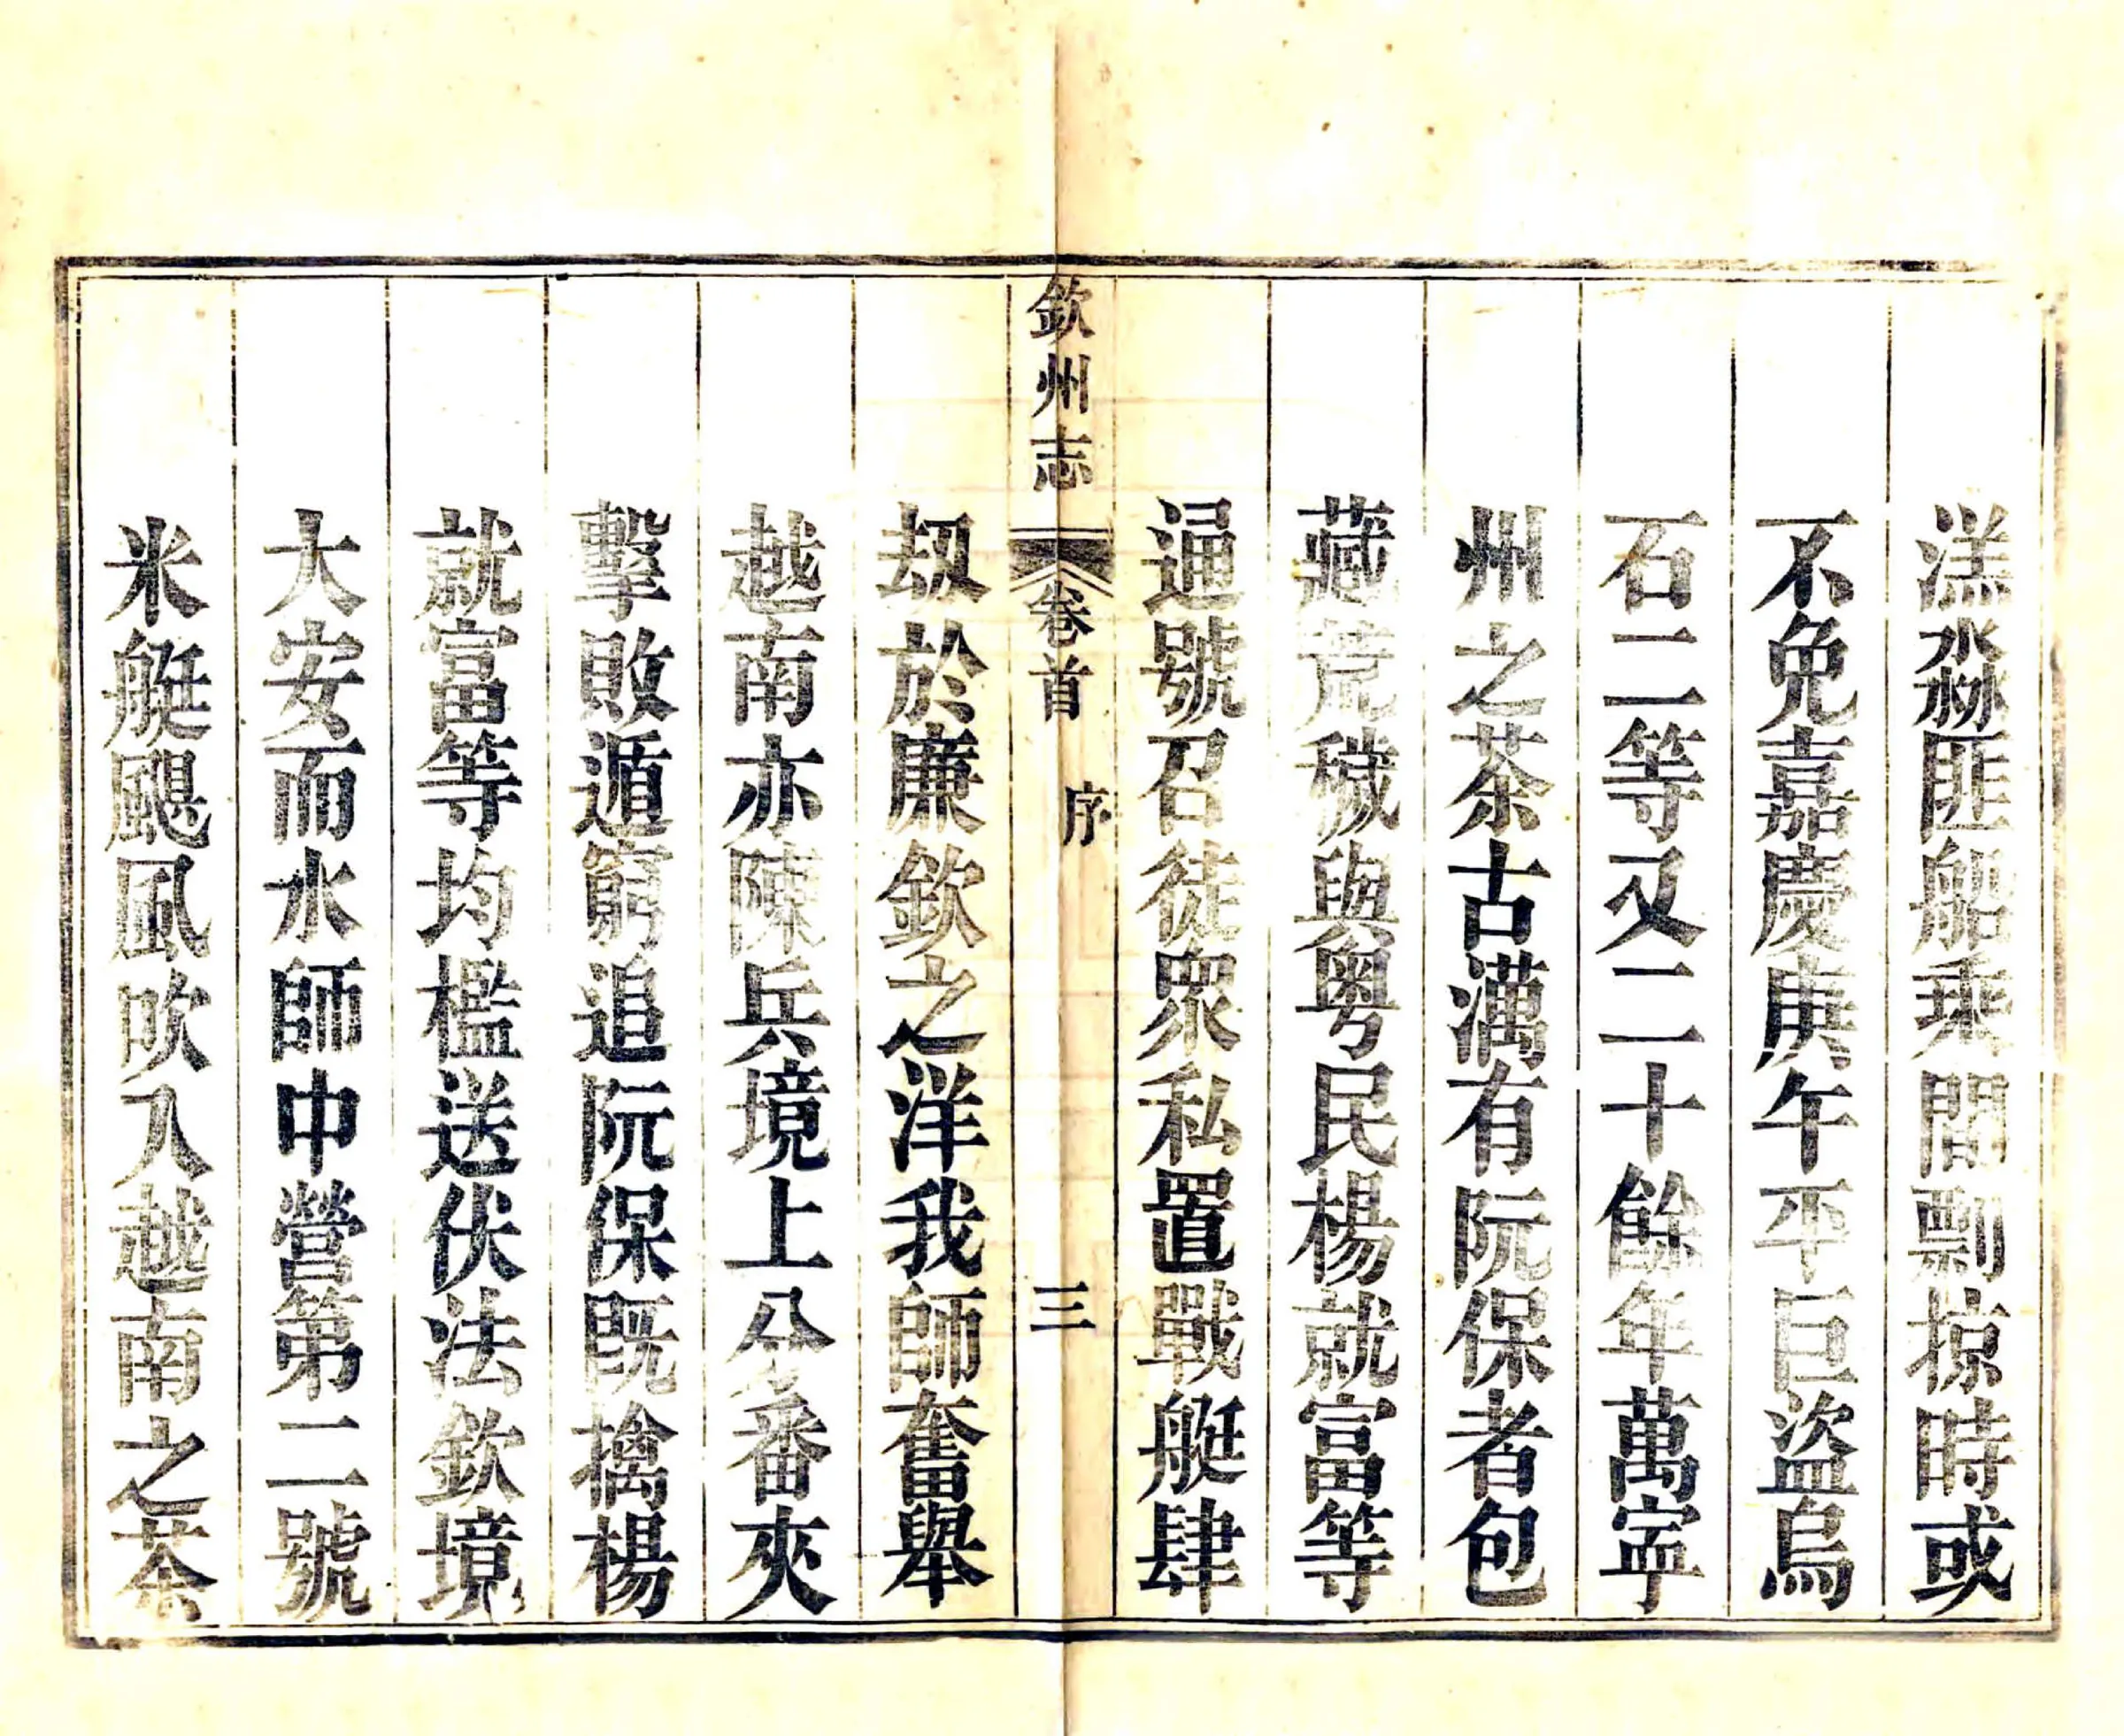 洋淼匪船乘間剽掠時或
不免嘉慶庚午平巨盜烏
石二等又二十餘年萬寍
州之茶古澫有阮保者包
藏荒穢與粵民楊就富等
逼號召徒衆私置戰艇肆
欽州志 卷首 序 三
刼於廉欽之洋我師奮舉
越南亦陳兵境上分番夾
擊敗遁窮追阮保既擒楊
就富等均檻送伏法欽境
大安而水師中營第二號
米艇颶風吹入越南之茶